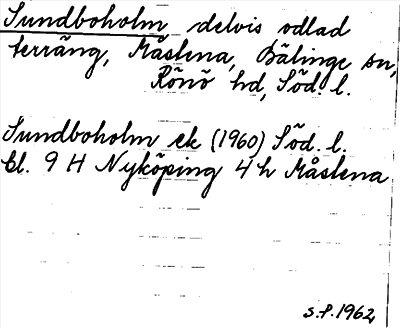 Sundboholm delvis odlad
terräng, Måstena, Bälinge sn,
Rönö hd, Söd. l.
Sundboholm ek (1960) Söd. l.
bl. 9 H Nyköping 4 h Måstena
S.P. 1962